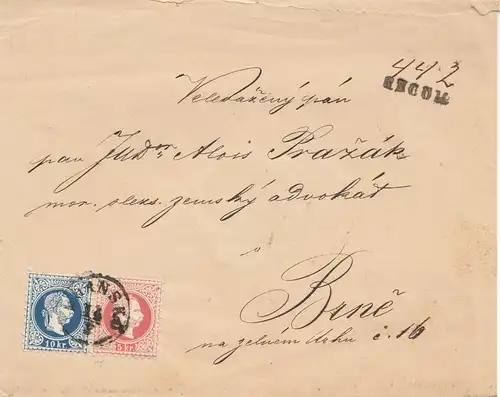 442
RECOM
Velevážený pán
pan JUDor Alois Pražák
mor. slezs. zemský advokát
v
Brně
na zelném trhu č. 16
10 kr.
5 kr.